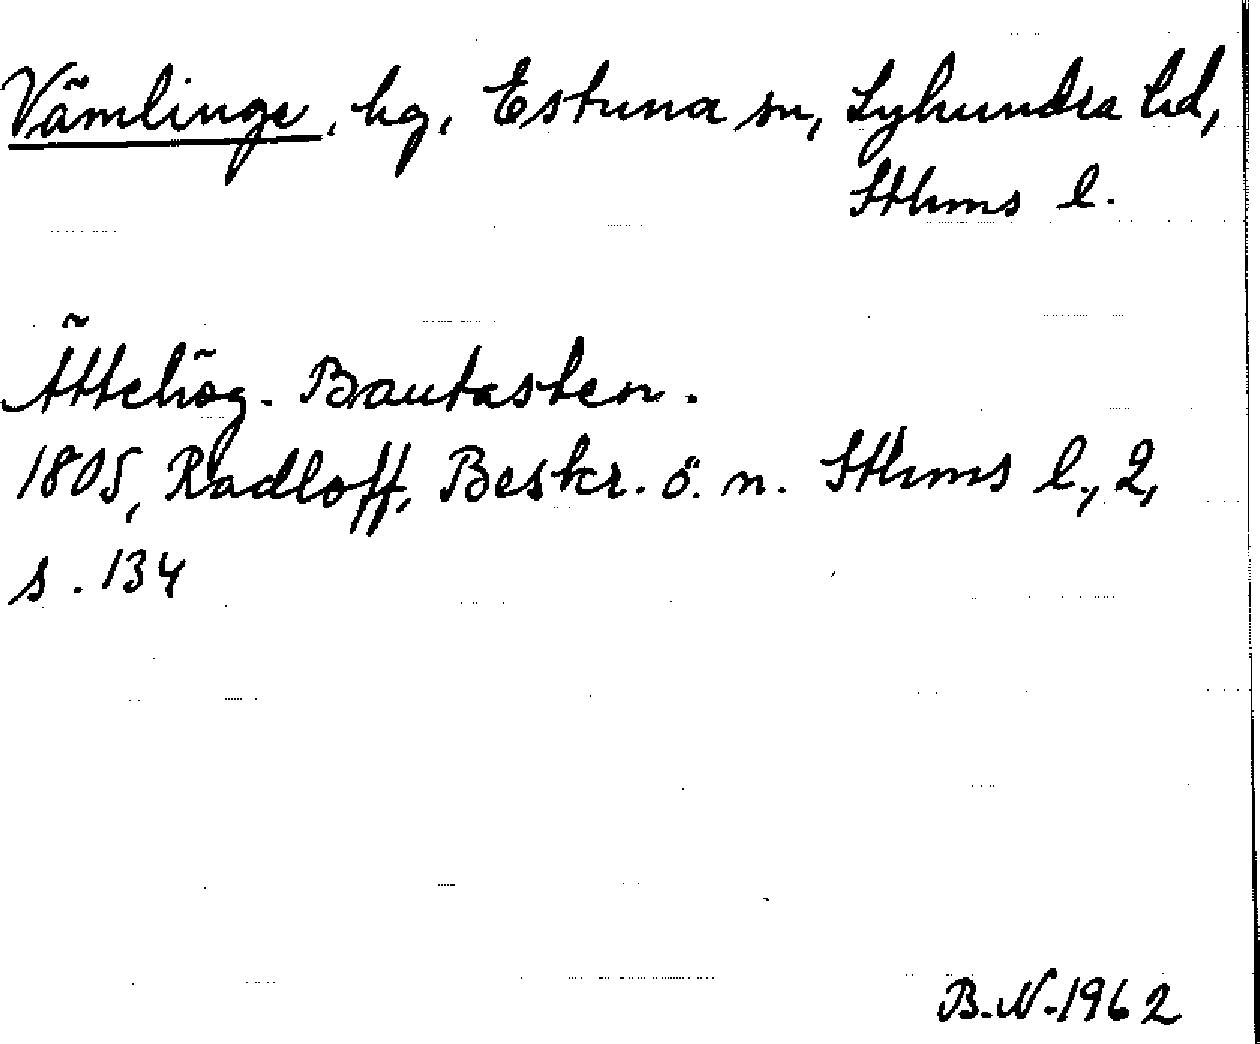 Vämlinge, hg, Estuna sn, Lyhundra hd,
Sthms l.
Ättehög. Bautasten.
1805, Radloff, Beskr. ö. n. Sthms l., 2,
s. 134
B.N. 1962